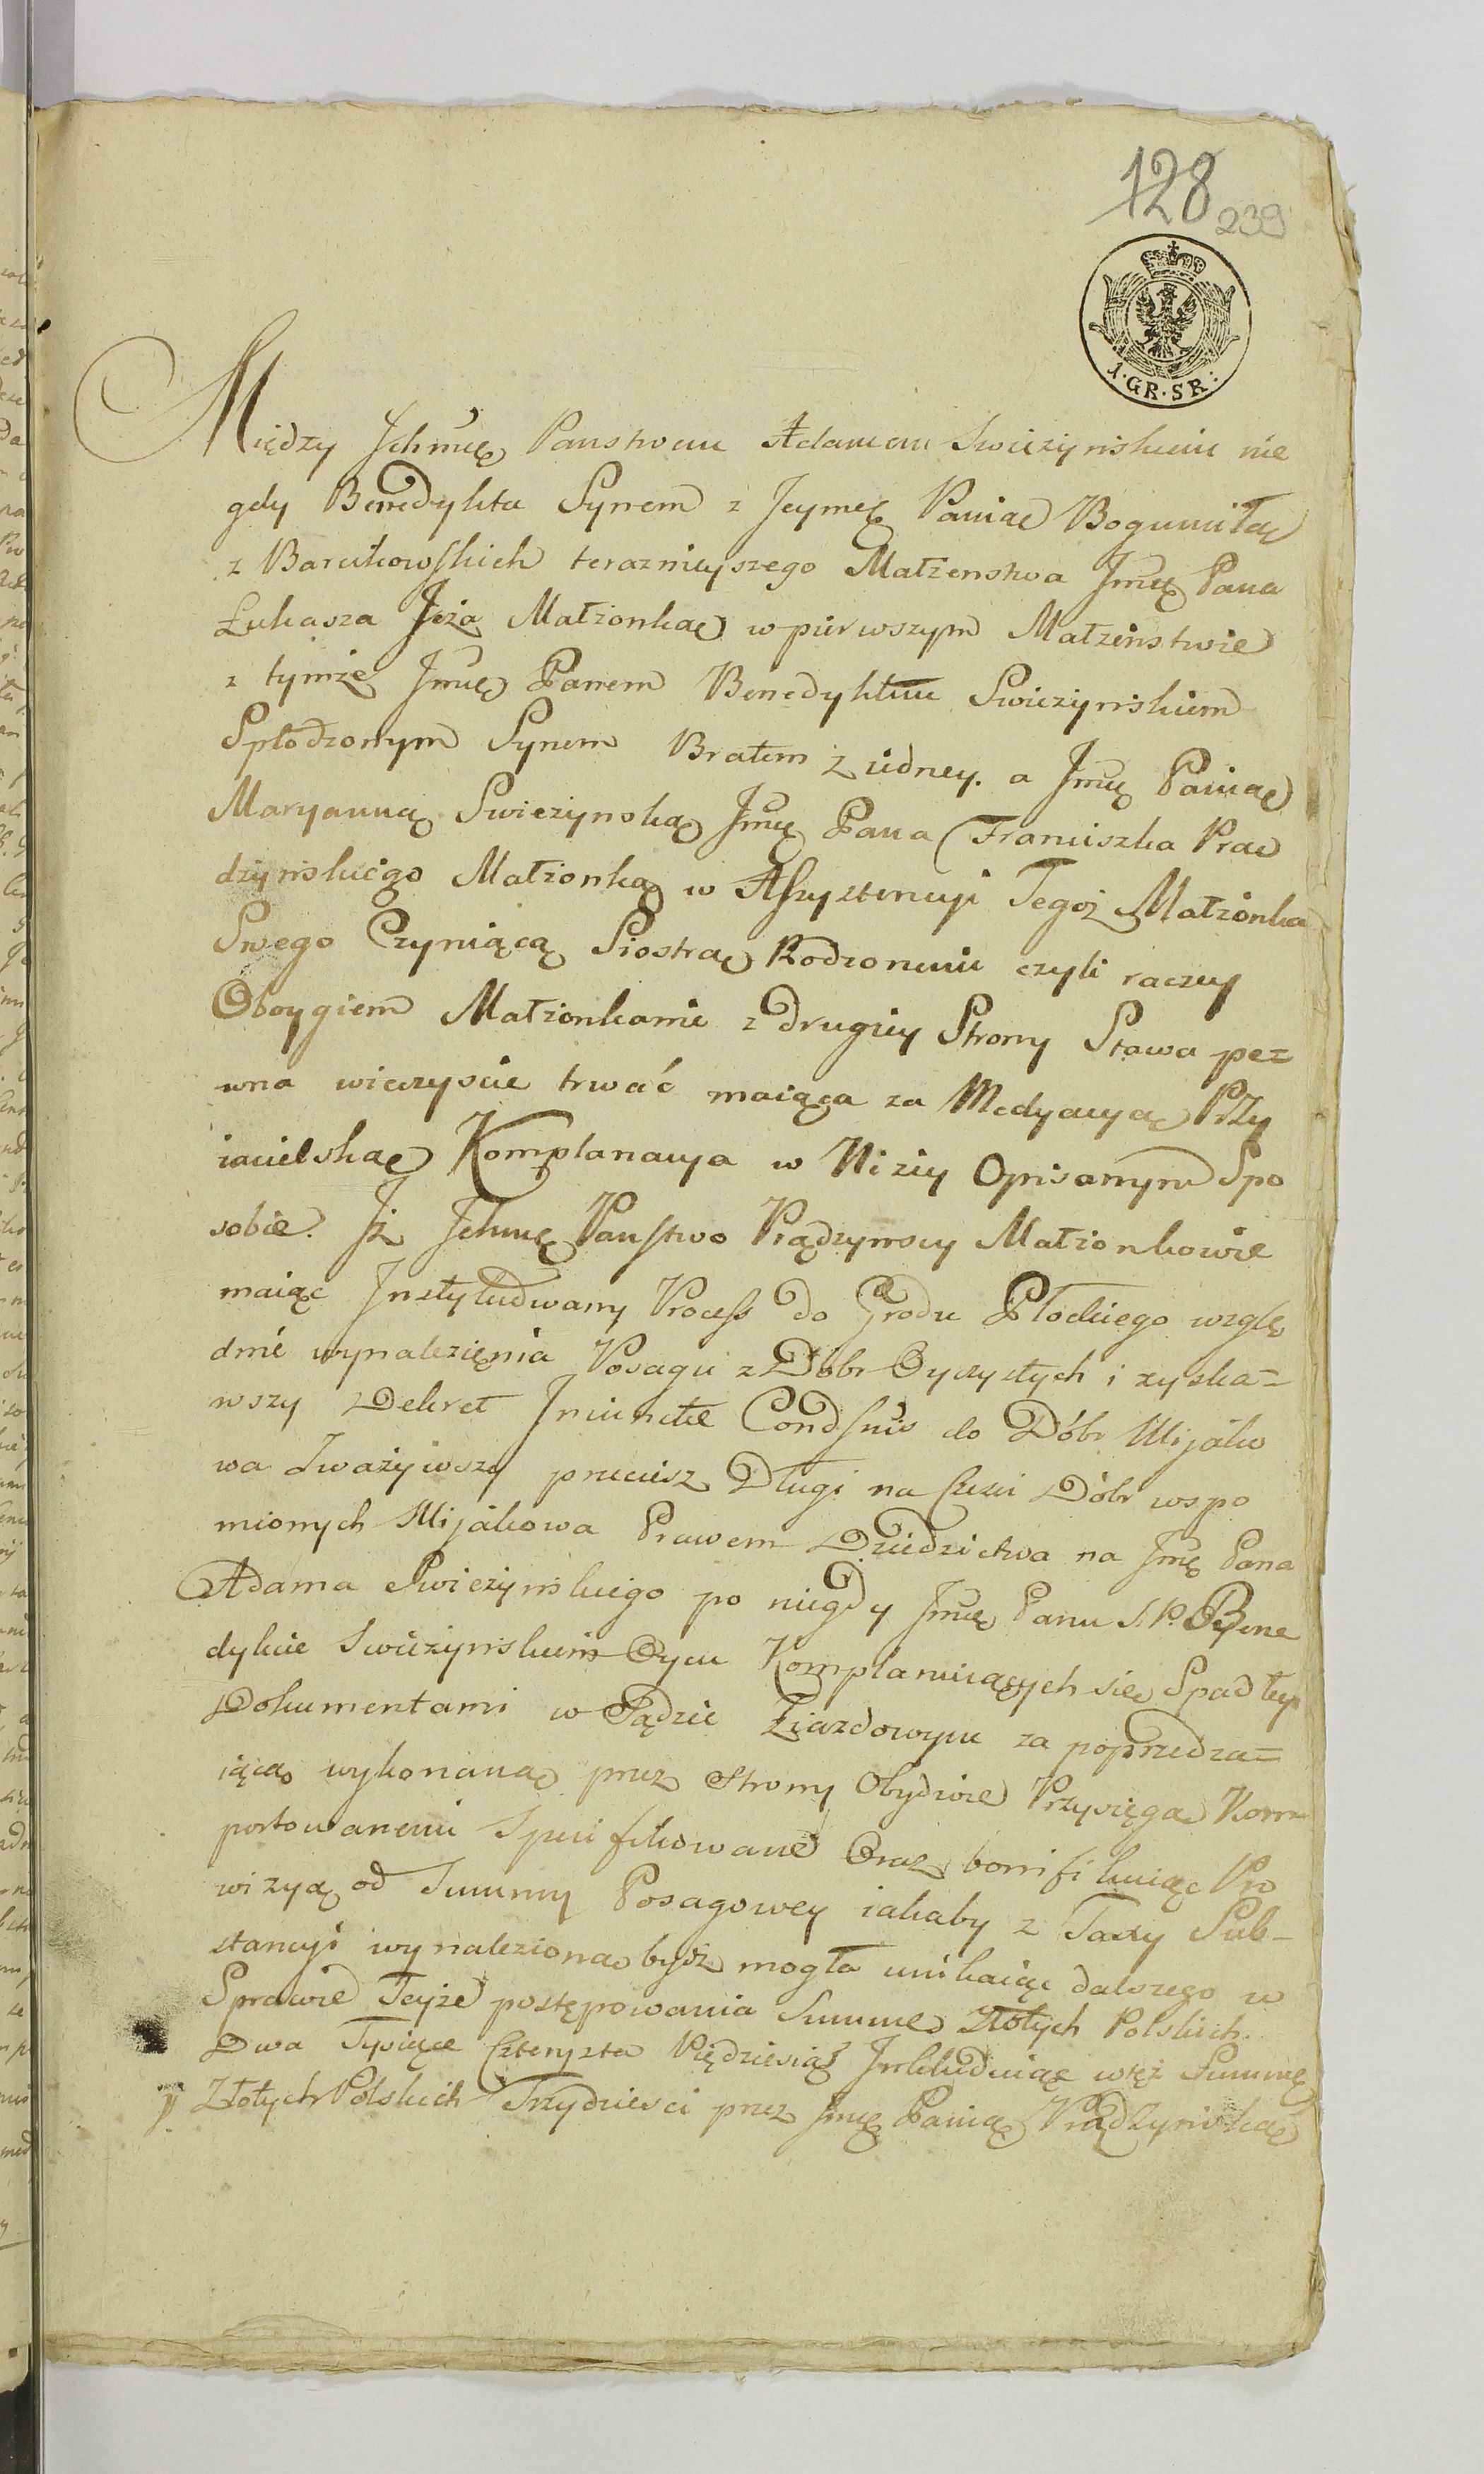 128
239
1·GR·SR:
Między Ichmę Panstwem Adamem Swiezynskiem nie
gdy Benedykta Synem z Jeymę Panią Bogumiłą
z Barcikowskich teraznieyszego Małzenstwa Jmę Pana
Łukasza Jeża Małżonką w pierwszym Małzenstwie
z tymże Jmę Panem Benedyktem Swiezynskiem
Spłodzonym Synem Bratem z iedney. a Jmę Panią
Maryanną Swiezynską Jmę Pana Franciszka Prą
dzynskiego Małżonką w Assystencyi Tegoż Małżonka
Swego Czyniącą Siostrą Rodzonemi czyli raczey
Oboygiem Małżonkami z drugiey Strony Stawa pe=
wna wieczyscie trwać maiąca za Medyacyą Przy
iacielską Komplanacya w Niżey Opisanym Spo
sobie. Iż Ichmę Panstwo Prądzynscy Małżonkowie
maiąc Instytudwany Process do Grodu Płockiego wzglę
dmé wynalezięnia Posagu z Dóbr Oyczystych i zyska=
wszy Dekret do Dóbr Mijako
wa Zważywszy przecież Długi na Części Dóbr wspo
mionych Mijakowa Prawem Dziedzictwa na Jmę Pana
Adama Swiezynskiego po niegdy Jmę Panu S. P. Bene
dykcie Swiezynskim Oycu Komplanuiących się Spadłey
Dokumentami w Sądzie Ziazdowym za poprzedza=
iącą wykonaną przez Strony Obydwie Przysięgą Kom
portowanemi Specifikowane Oraz bonifikuiąc Pro
wizyą od Summy Posagowey iakaby z Taxy Sub=
stancyi wynaleziona bydz mogła unikaiąc dalszego w
Sprawie Teyże postępowania Summę Złotych Polskich
Dwa Tysiące Czterysta Piędziesiąt Inkludwiąc w też Summę
Złotych Polskich Trzydziesci przez Jmę Panią Prądzynską